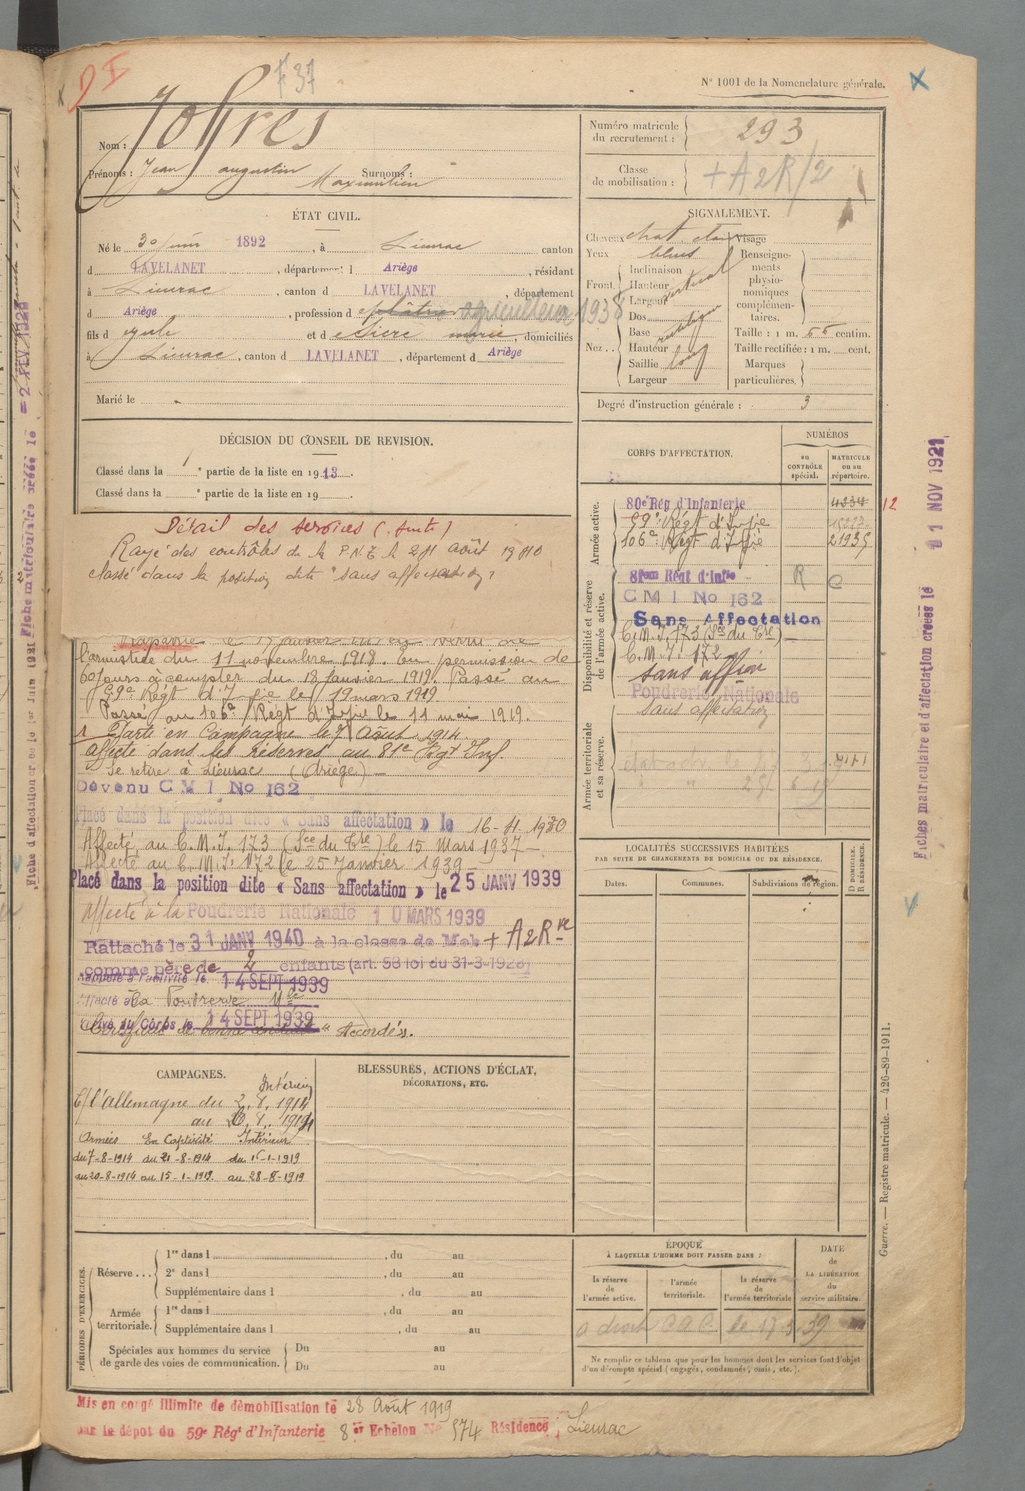 F 37
N° 1001 de la Nomenclature générale.
Nom : Joffres
Prénoms : Jean augustin Maximilien Surnoms :
Numéro matricule du recrutement : 293
Classe de mobilisation : + A 2R/2
ÉTAT CIVIL.
Né le 30 juin 1892, à Lieurac canton
d LAVELANET, département d Ariège, résidant
à Lieurac, canton d LAVELANET, département
d Ariège, profession d agriculteur 1938
fils d et d marie, domiciliés
à Lieurac, canton d LAVELANET, département d Ariège
Marié le
SIGNALEMENT.
Cheveux chat. clair Visage
Yeux bleus
Front. Inclinaison vertical
Hauteur
Largeur
Nez.. Dos
Base
Hauteur
Saillie
Largeur
Renseignements physionomiques complémentaires.
Taille : 1 m. centim.
Taille rectifiée : 1 m. cent.
Marques particulières.
Degré d'instruction générale : 3
DÉCISION DU CONSEIL DE REVISION.
Classé dans la 1e partie de la liste en 1913.
Classé dans la e partie de la liste en 19
Détail des services (suite)
Rayé des contrôles de la P.N.T. le 24 août 1940
classé dans la position dite "sans affectation"
Rapatrié le 15 janvier 1919 en vertu de
l'armistice du 11 novembre 1918. En permission de
60 jours à compter du 18 janvier 1919. Passé au
59e Régt d'Ifie le 19 mars 1919
Passé au 106e Régt d'Ifie le 11 mai 1919.
Parti en Campagne le 7 Août 1914
affecté dans les réserves au 81e Régt Inf.
Se retire à Lieurac (Ariège)
Devenu C M I No 162
Placé dans la position dite « Sans affectation » le 16-11-1930
Affecté au C.M.I. 173 (Sce du Tre) le 15 Mars 1937
Affecté au C.M.I. 172 le 25 Janvier 1939
Placé dans la position dite « Sans affectation » le 25 JANV 1939
affecté à la Poudrerie Nationale 10 MARS 1939
Rattaché le 31 JANV 1940 à la classe de Mob + A2Rve
comme père de 2 enfants (art. 58 loi du 31-3-1928)
Rappelé à l'activité le 14 SEPT 1939
Affecté à La Poudrerie Nle
Arrivé au Corps le 14 SEPT 1939
Certificat de bonne conduite "Accordé".
CORPS D'AFFECTATION.
NUMÉROS
au CONTRÔLE spécial.
MATRICULE ou au répertoire.
Armée active.
80e Rég d'Infanterie 4234 12
59e Régt d'Ifie
106e Régt d'Ifie 21935
Disponibilité et réserve de l'armée active.
81em Régt d'Infie R C
C M I No 162
Sans Affectation
C.M.I. 173 (Sce du Tre)
C.M.I. 172
sans affion
Poudrerie Nationale
sans affectation
Armée territoriale et sa réserve.
LOCALITÉS SUCCESSIVES HABITÉES
PAR SUITE DE CHANGEMENTS DE DOMICILE OU DE RÉSIDENCE.
Dates.
Communes.
Subdivisions de région.
D DOMICILE. R RÉSIDENCE.
CAMPAGNES.
Intérieur
C/ l'allemagne du 2.8.1914
au 6.8.1914
Armées En Captivité Intérieur
du 7-8-1914 du 21-8-1914 du 16-1-1919
au 20-8-1914 au 15-1-1919 au 28-8-1919
BLESSURES, ACTIONS D'ÉCLAT,
DÉCORATIONS, ETC.
PÉRIODES D'EXERCICES.
Réserve... 1re dans l , du au
2e dans l , du au
Supplémentaire dans l , du au
Armée territoriale. 1re dans l , du au
Supplémentaire dans l , du au
Spéciales aux hommes du service de garde des voies de communication. Du au
Du au
ÉPOQUE
À LAQUELLE L'HOMME DOIT PASSER DANS :
la réserve de l'armée active.
l'armée territoriale.
la réserve de l'armée territoriale
DATE de LA LIBÉRATION du service militaire.
a droit C A C le 17-3-39
Ne remplir ce tableau que pour les hommes dont les services font l'objet
d'un décompte spécial (engagés, condamnés, omis, etc.).
Mis en congé illimité de démobilisation le 28 Août 1919
par le dépot du 59e Rég' d'Infanterie 8e Echelon No 574 Résidence Lieurac
Guerre. — Registre matricule. — 426-89-1911.
Fiches matriculaire et d'affectation créées le 01 NOV 1921